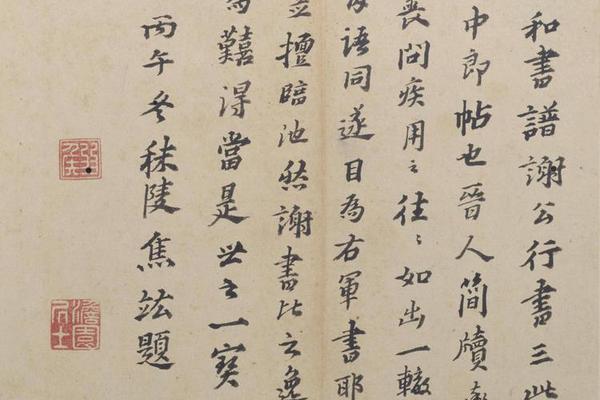 和書譜謝公行書三此
中郎帖也晉人簡牘
喪問疾用之往〻如出一轍
語同遂目為右軍書耶
擅臨池然謝書比之逸
難得當是世之一寶
丙午冬秣陵焦竑題
澹園居士